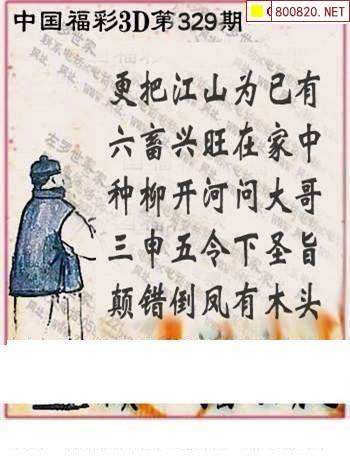 中国福彩3D第329期
800820.NET
更把江山为已有
六畜兴旺在家中
种柳开河问大哥
三申五令下圣旨
颠错倒凤有木头